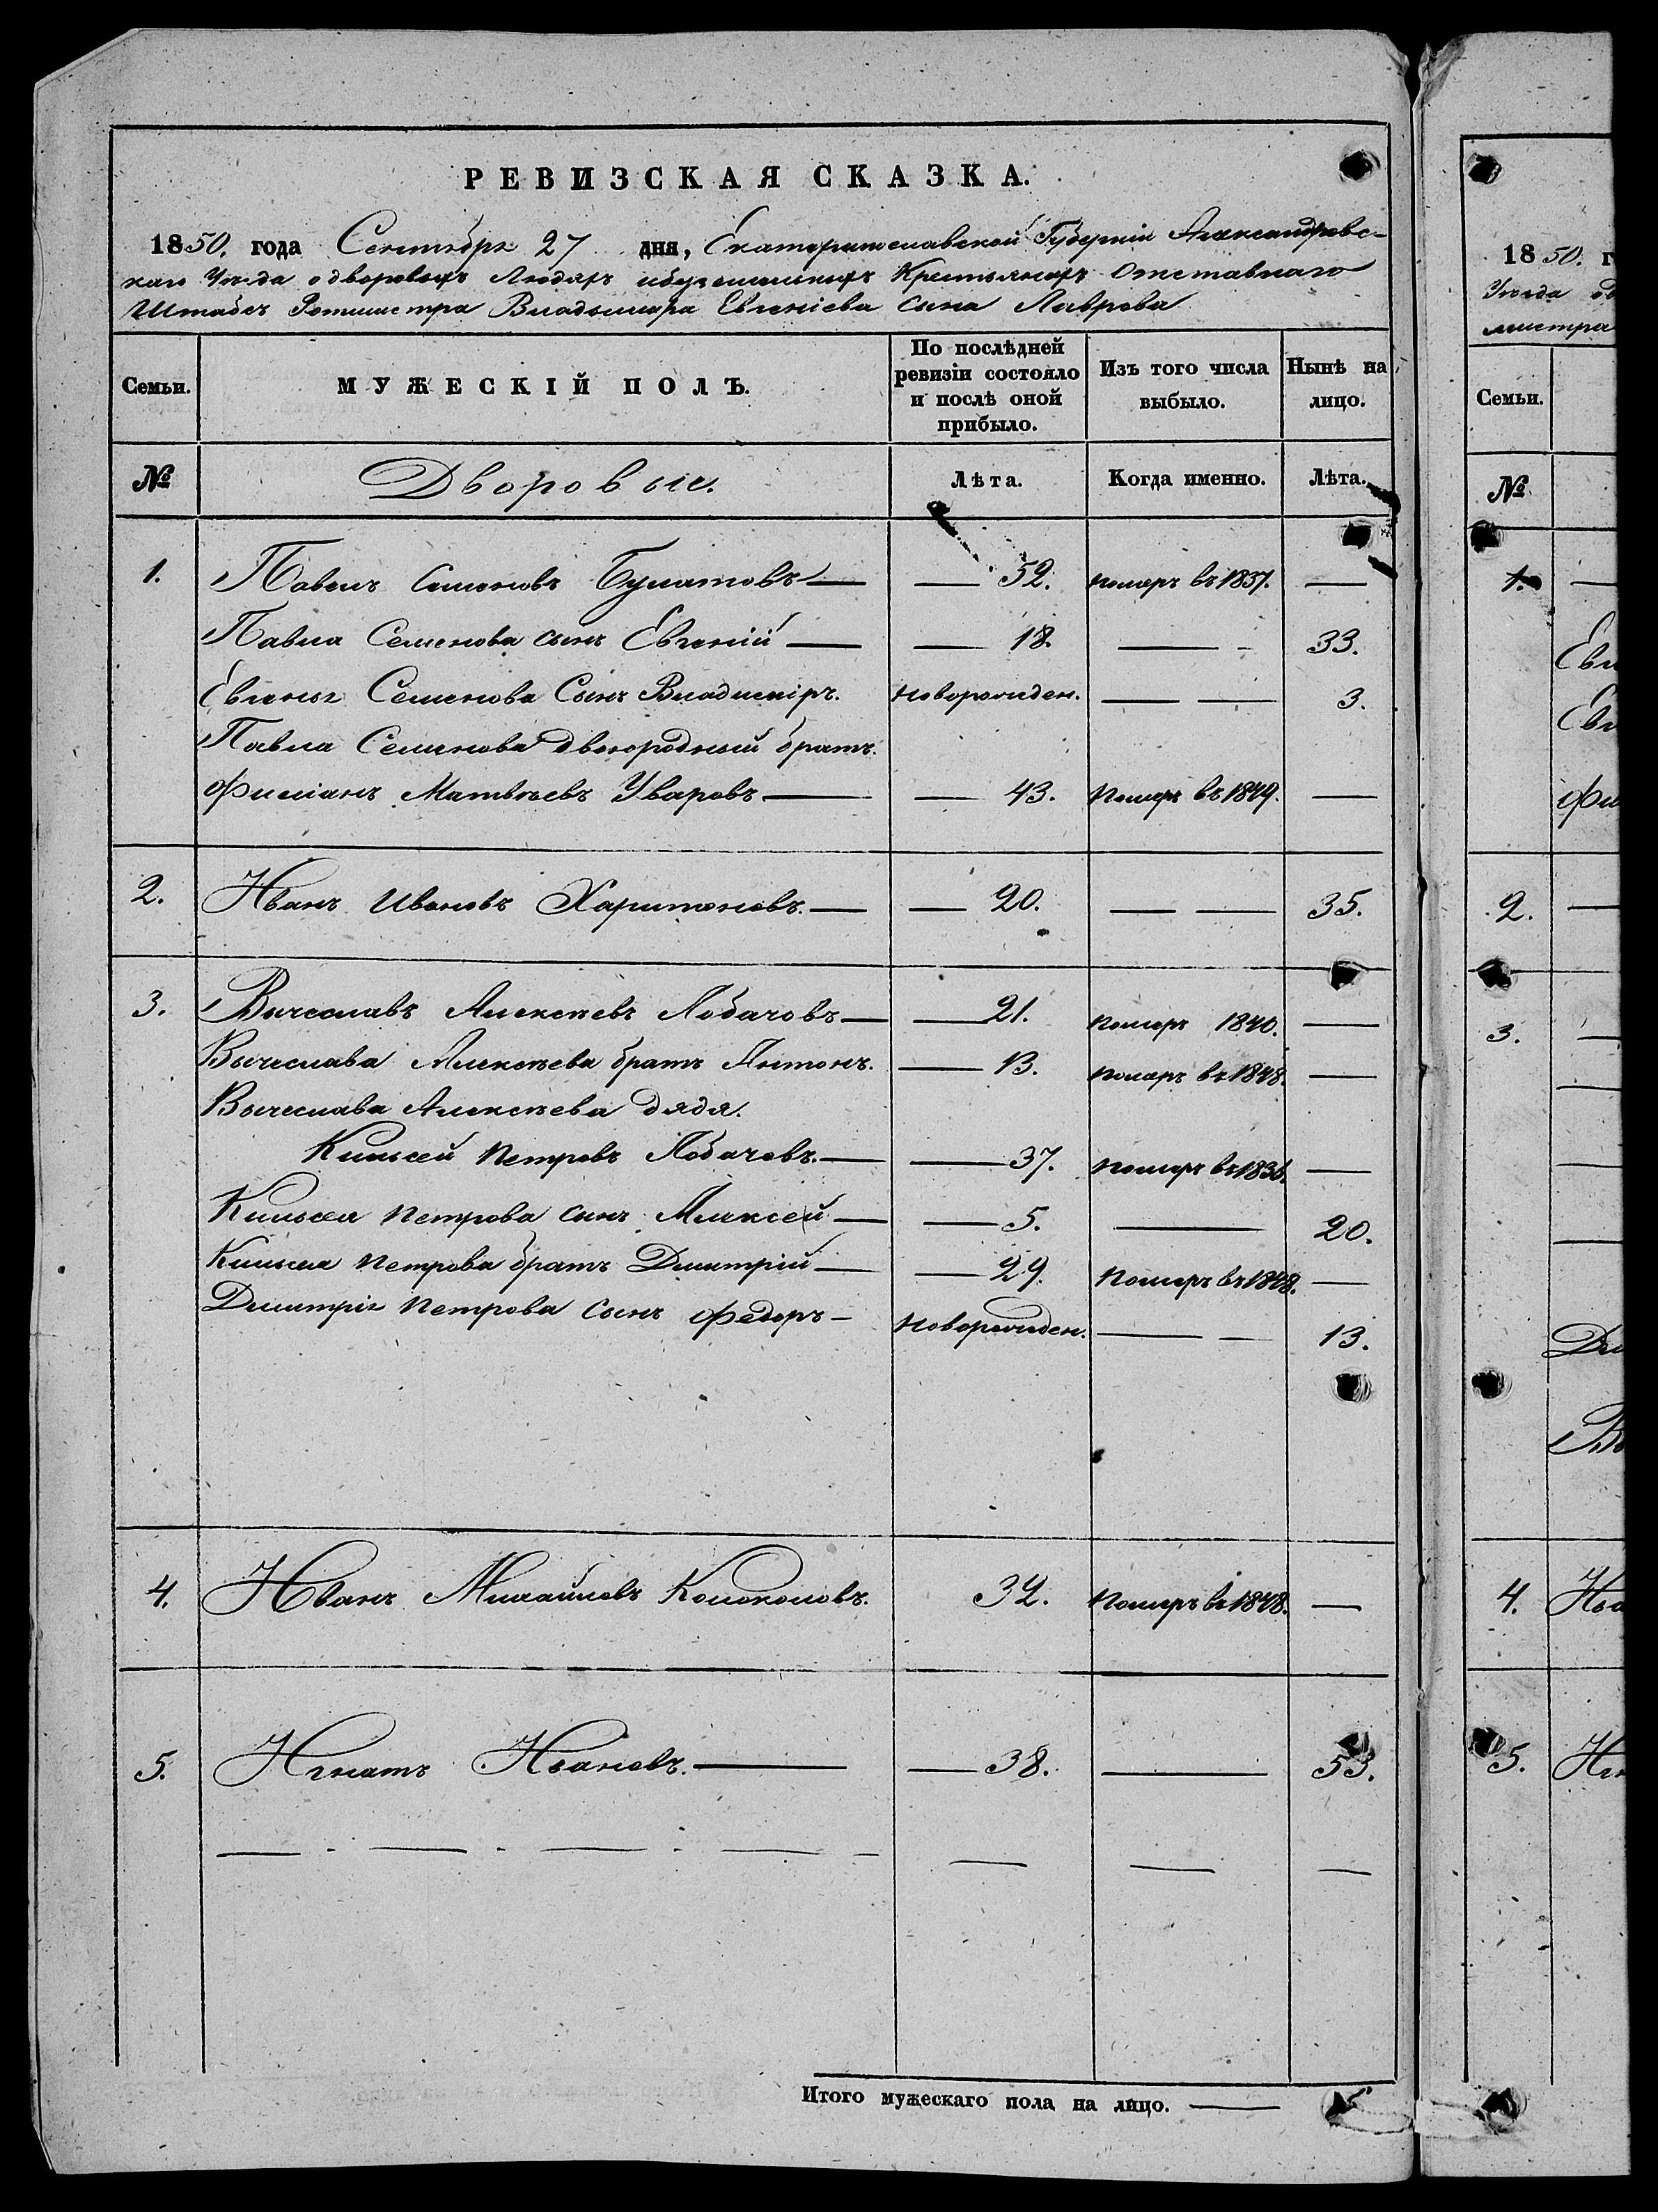 РЕВИЗСКАЯ СКАЗКА.
1850. года Сентября 27 дня, Екатеринославской Губерніи Александровс-
каго Уѣзда о дворовыхъ Людяхъ ибезземельныхъ Крестьянахъ Отставнаго
Штабсъ Ротмистра Владимира Евгеніева сына Лаврова
Семьи. МУЖЕСКІЙ ПОЛЪ. По послѣдней ревизіи состояло и послѣ оной прибыло. Изъ того числа выбыло. Нынѣ на лицо.
№ Дворовые. Лѣта. Когда именно. Лѣта.
1. Павелъ Семеновъ Булатовъ — 52. померъ въ 1837. —
Павла Семенова сынъ Евгеній — 18. — 33.
Евгенія Семенова Сынъ Владиміръ. новорожден. — 3.
Павла Семенова двоюродный братъ
Фиміанъ Матвѣевъ Уваровъ — 43. Померъ въ 1849. —
2. Иванъ Ивановъ Харитоновъ. — 20. — 35.
3. Вячеславъ Алексѣевъ Лобачовъ — 21. померъ 1840. —
Вячеслава Алексѣева братъ Антонъ. — 13. померъ въ 1848. —
Вячеслава Алексѣева дядя.
Петровъ Лобачовъ. — 37. померъ въ 1836. —
Петрова сынъ Алексей — 5. — 20.
Петрова братъ Дмитрій — 29. Померъ въ 1848. —
Дмитрія Петрова сынъ Федоръ — новорожден. — 13.
4. Иванъ Михайловъ Колоколовъ. 32. Померъ въ 1848. —
5. Игнатъ Ивановъ. — 38. — 53.
Итого мужескаго пола на лицо. — 5
1850. г
Уѣзда
мистра
Семьи.
№
1. —
Евг
Евг
Фи
2. —
3. —
Дм
4. Ива
5. Иг